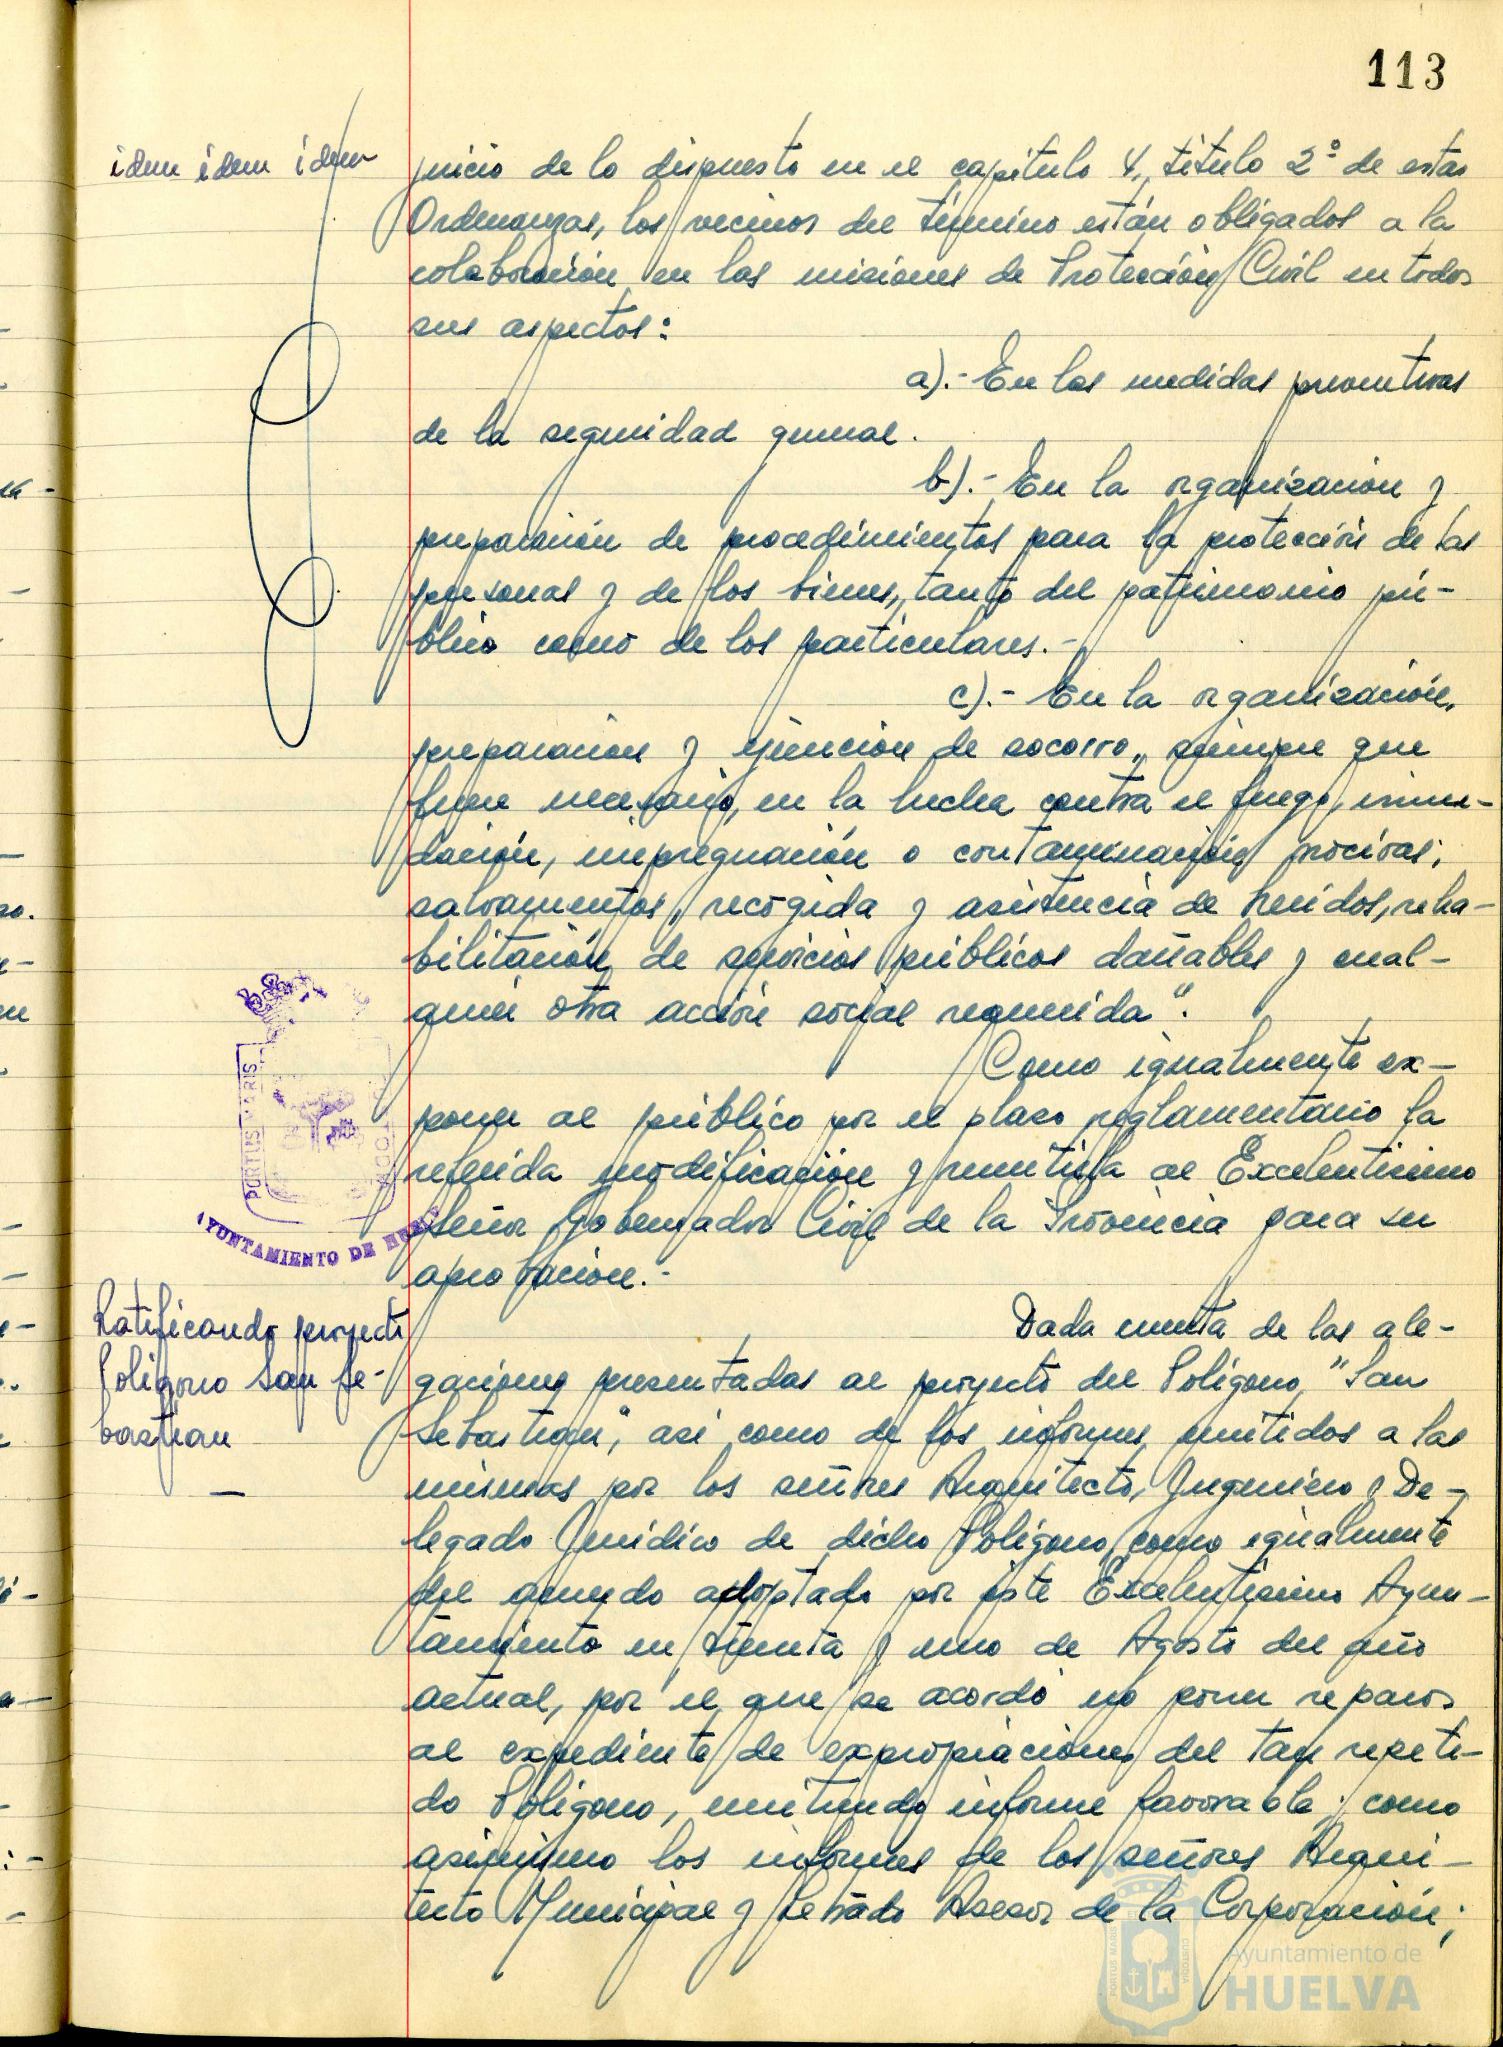 113
idem idem idem
juicio de lo dispuesto en el capítulo 4, título 2º de estas
Ordenanzas, los vecinos del término están obligados a la
colaboración en las misiones de Protección Civil en todos
sus aspectos:
a).- En las medidas preventivas
de la seguridad general.
b).- En la organización y
preparación de procedimientos para la protección de las
personas y de los bienes, tanto del patrimonio pú-
blico como de los particulares.-
c).- En la organización,
preparación y ejecución de socorro, siempre que
fuere necesario, en la lucha contra el fuego, inun-
dación, impregnación o contaminación nocivas;
salvamentos, recogida y asistencia de heridos, reha-
bilitación de servicios públicos dañables y cual-
quier otra acción social requerida".
Como igualmente ex-
poner al público por el plazo reglamentario la
referida modificación y remitirla al Excelentísimo
Señor Gobernador Civil de la Provincia para su
aprobación.-
PORTUS MARIS
CUSTODIA
AYUNTAMIENTO DE HUELVA
Ratificando proyecto
Polígono San Se-
bastian
Dada cuenta de las ale-
gaciones presentadas al proyecto del Polígono "San
Sebastian", así como de los informes emitidos a las
mismas por los señores Arquitecto, Ingeniero y De-
legado Jurídico de dicho Polígono, como igualmente
del acuerdo adoptado por este Excelentísimo Ayun-
tamiento en treinta y uno de Agosto del año
actual, por el que se acordó no poner reparos
al expediente de expropiaciones del tan repeti-
do Polígono, emitiendo informe favorable; como
asimismo los informes de los señores Arqui-
tecto Municipal y Letrado Asesor de la Corporación;
PORTUS MARIS
CUSTODIA
Ayuntamiento de
HUELVA